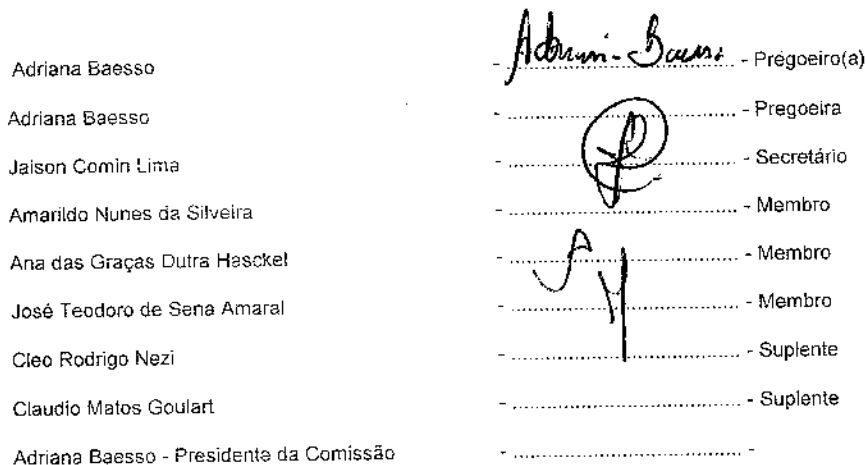 Adriana Baesso - ........................ - Pregoeiro(a)
Adriana Baesso - ........................ - Pregoeira
Jaison Comin Lima - ........................ - Secretário
Amarildo Nunes da Silveira - ........................ - Membro
Ana das Graças Dutra Hasckel - ........................ - Membro
José Teodoro de Sena Amaral - ........................ - Membro
Cleo Rodrigo Nezi - ........................ - Suplente
Claudio Matos Goulart - ........................ - Suplente
Adriana Baesso - Presidente da Comissão - ........................ -